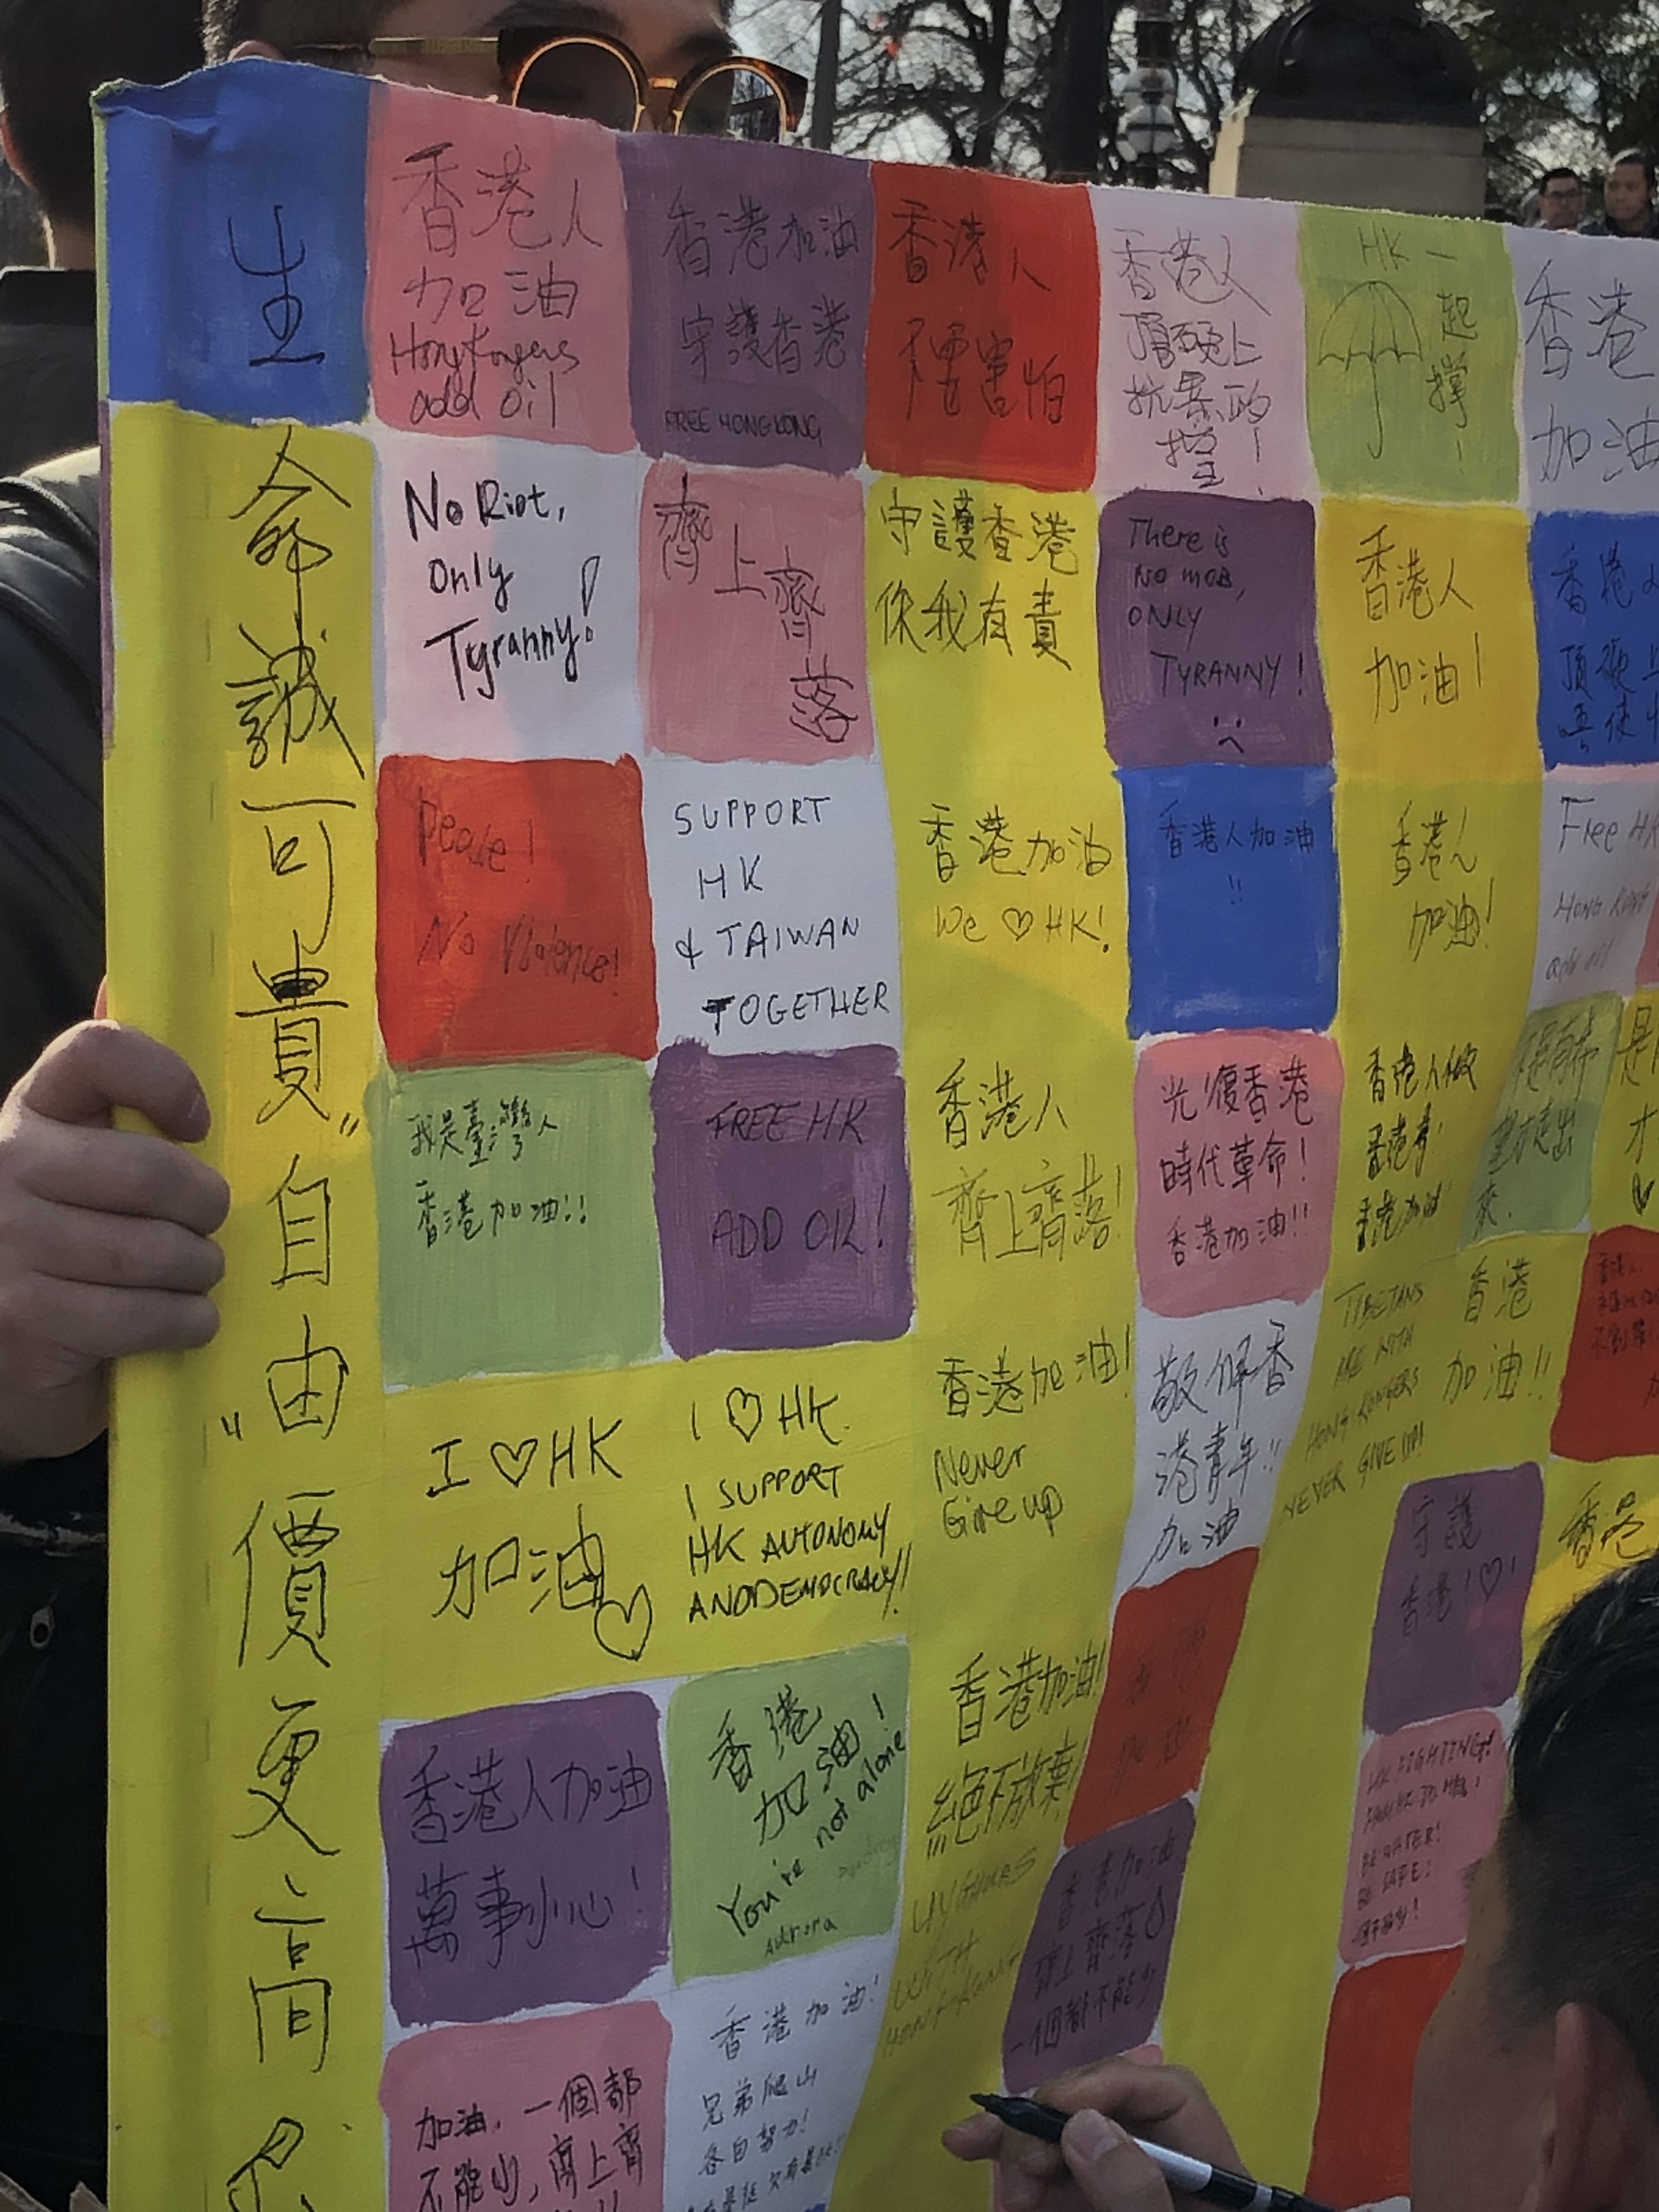 生命誠可貴"
"自由價更高
香港人
加油
Hongkongers
add oil
香港加油
守護香港
FREE HONGKONG
香港人
不需害怕
香港人
頂硬上
抗暴政
HK 一
起
撐
!
香港
加油
No Riot,
Only
Tyranny!
齊上齊
落
守護香港
你我有責
There is
NO MOB,
ONLY
TYRANNY!
香港人
加油!
香港人
頂硬上
Peace!
No Violence!
SUPPORT
HK
& TAIWAN
TOGETHER
香港加油
We ♡ HK!
香港人加油
!!
香港人
加油!
Free HK
HONG KONG
add oil
我是臺灣人
香港加油!!
FREE HK
ADD OIL!
香港人
齊上齊落!
光復香港
時代革命!
香港加油!!
香港人
香港加油
I ♡ HK
加油♡
I ♡ HK.
I SUPPORT
HK AUTONOMY
AND DEMOCRACY!!
香港加油!
Never
Give up
敬佩香
港青年!!
加油
TIBETANS
ARE WITH
HONG KONGERS
NEVER GIVE UP!
香港
加油!!
香港人加油
萬事小心!
香港
加油!
You're not alone
Aurora
香港加油!
絕不放棄!
UYGHURS
WITH
守護
香港!♡!
香港
HK FIGHTING!
BE WATER!
BE SAFE!
香港加油
齊上齊落
一個都不能少
加油,一個都
不能少,齊上齊
香港加油!
兄弟爬山
各自努力!